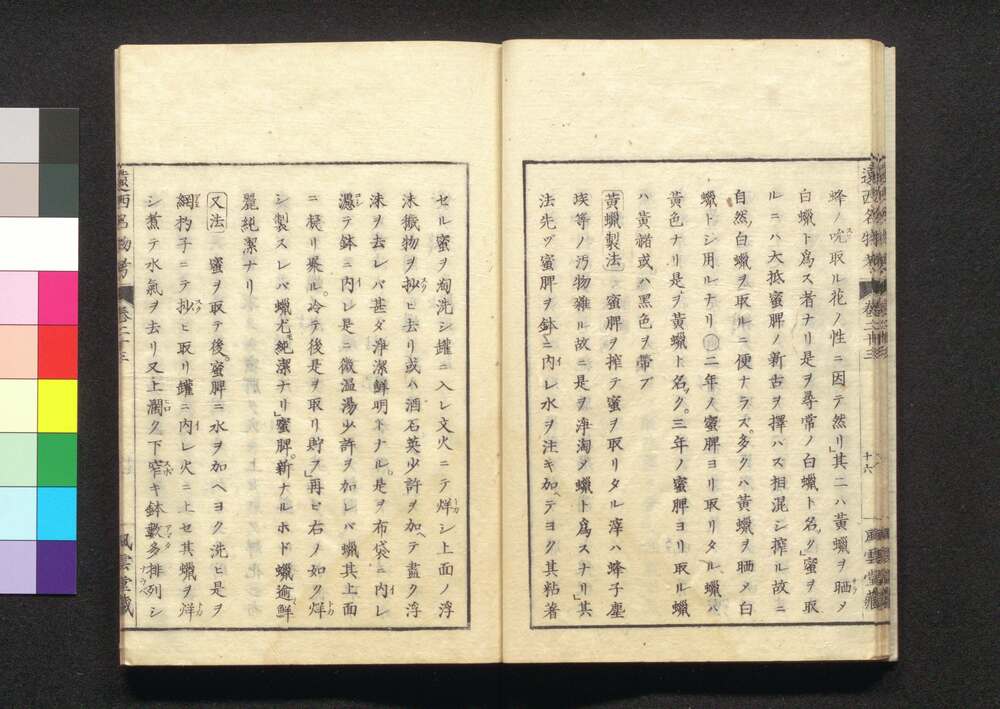 遠西名物考 卷二十三 十六 風雲堂藏
蜂ノ吮取ル花ノ性ニ因テ然リ其二ハ黃蠟ヲ晒メ
白蠟ト爲ス者ナリ是ヲ尋常ノ白蠟ト名ク蜜ヲ取
ルニハ大抵蜜脾ノ新古ヲ擇ハス相混シ搾ル故ニ
自然白蠟ヲ取ルニ便ナラズ多クハ黃蠟ヲ晒メ白
蠟トシ用ルナリ○二年ノ蜜脾ヨリ取リタル蠟ハ
黃色ナリ是ヲ黃蠟ト名ク三年ノ蜜脾ヨリ取ル蠟
ハ黃赭或ハ黑色ヲ帶ブ
黃蠟製法 蜜脾ヲ搾テ蜜ヲ取リタル滓ハ蜂子塵
埃等ノ汚物雜ル故ニ是ヲ淨淘メ蠟ト爲スナリ其
法先ヅ蜜脾ヲ鉢ニ內レ水ヲ注キ加ヘテヨク其粘著
セル蜜ヲ淘洗シ罐ニ入レ文火ニテ烊シ上面ノ浮
沫穢物ヲ抄ヒ去リ或ハ酒石英少許ヲ加ヘテ盡ク浮
沫ヲ去レバ甚ダ淨潔鮮明トナル是ヲ布袋ニ內レ
濾テ鉢ニ內レ是ニ微溫湯少許ヲ加レバ蠟其上面
ニ凝リ聚ル冷テ後是ヲ取リ貯フ再ビ右ノ如ク烊
シ製スレバ蠟尤純潔ナリ蜜脾新ナルホド蠟逾鮮
麗純潔ナリ
又法 蜜ヲ取テ後蜜脾ニ水ヲ加ヘヨク洗ヒ是ヲ
網杓子ニテ抄ヒ取リ罐ニ內レ火ニ上セ其蠟ヲ烊
シ煮テ水氣ヲ去リ又上濶ク下窄キ鉢數多排列シ
遠西名物考 卷二十三 風雲堂藏